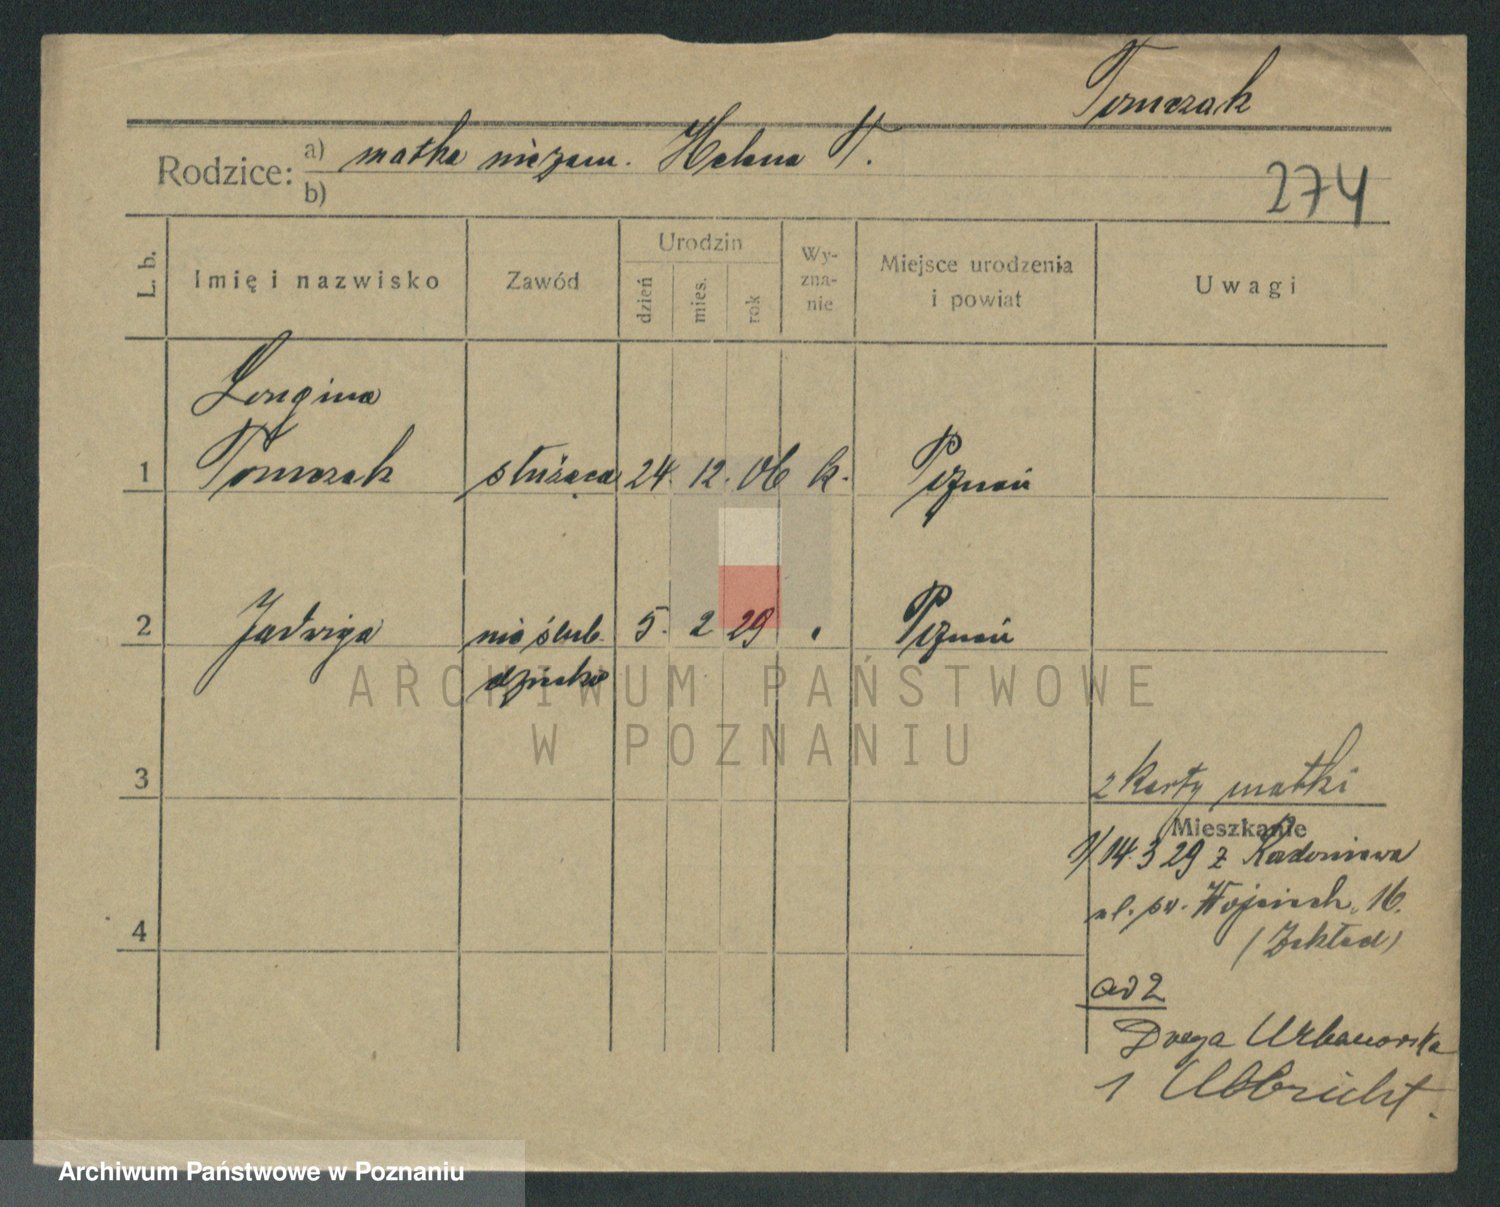 Tomczak
Rodzice: a) matka niezam. Helena T.
b)
274
L. b.
Imię i nazwisko
Zawód
Urodzin
dzień
mies.
rok
Wy-
zna-
nie
Miejsce urodzenia
i powiat
Uwagi
Longina
1 Tomczak służąca 24. 12. 06 k. Poznań
2 Jadwiga nieślub. 5. 2 29 Poznań
dziecko
ARCHIWUM PAŃSTWOWE
W POZNANIU
3
2 karty matki
Mieszkanie
1/ 14. 3 29 z Radoniewa
ul. św. Wojciech. 16.
(Zakład)
4
ad 2
Droga Urbanowska
1 Ulbricht.
Archiwum Państwowe w Poznaniu